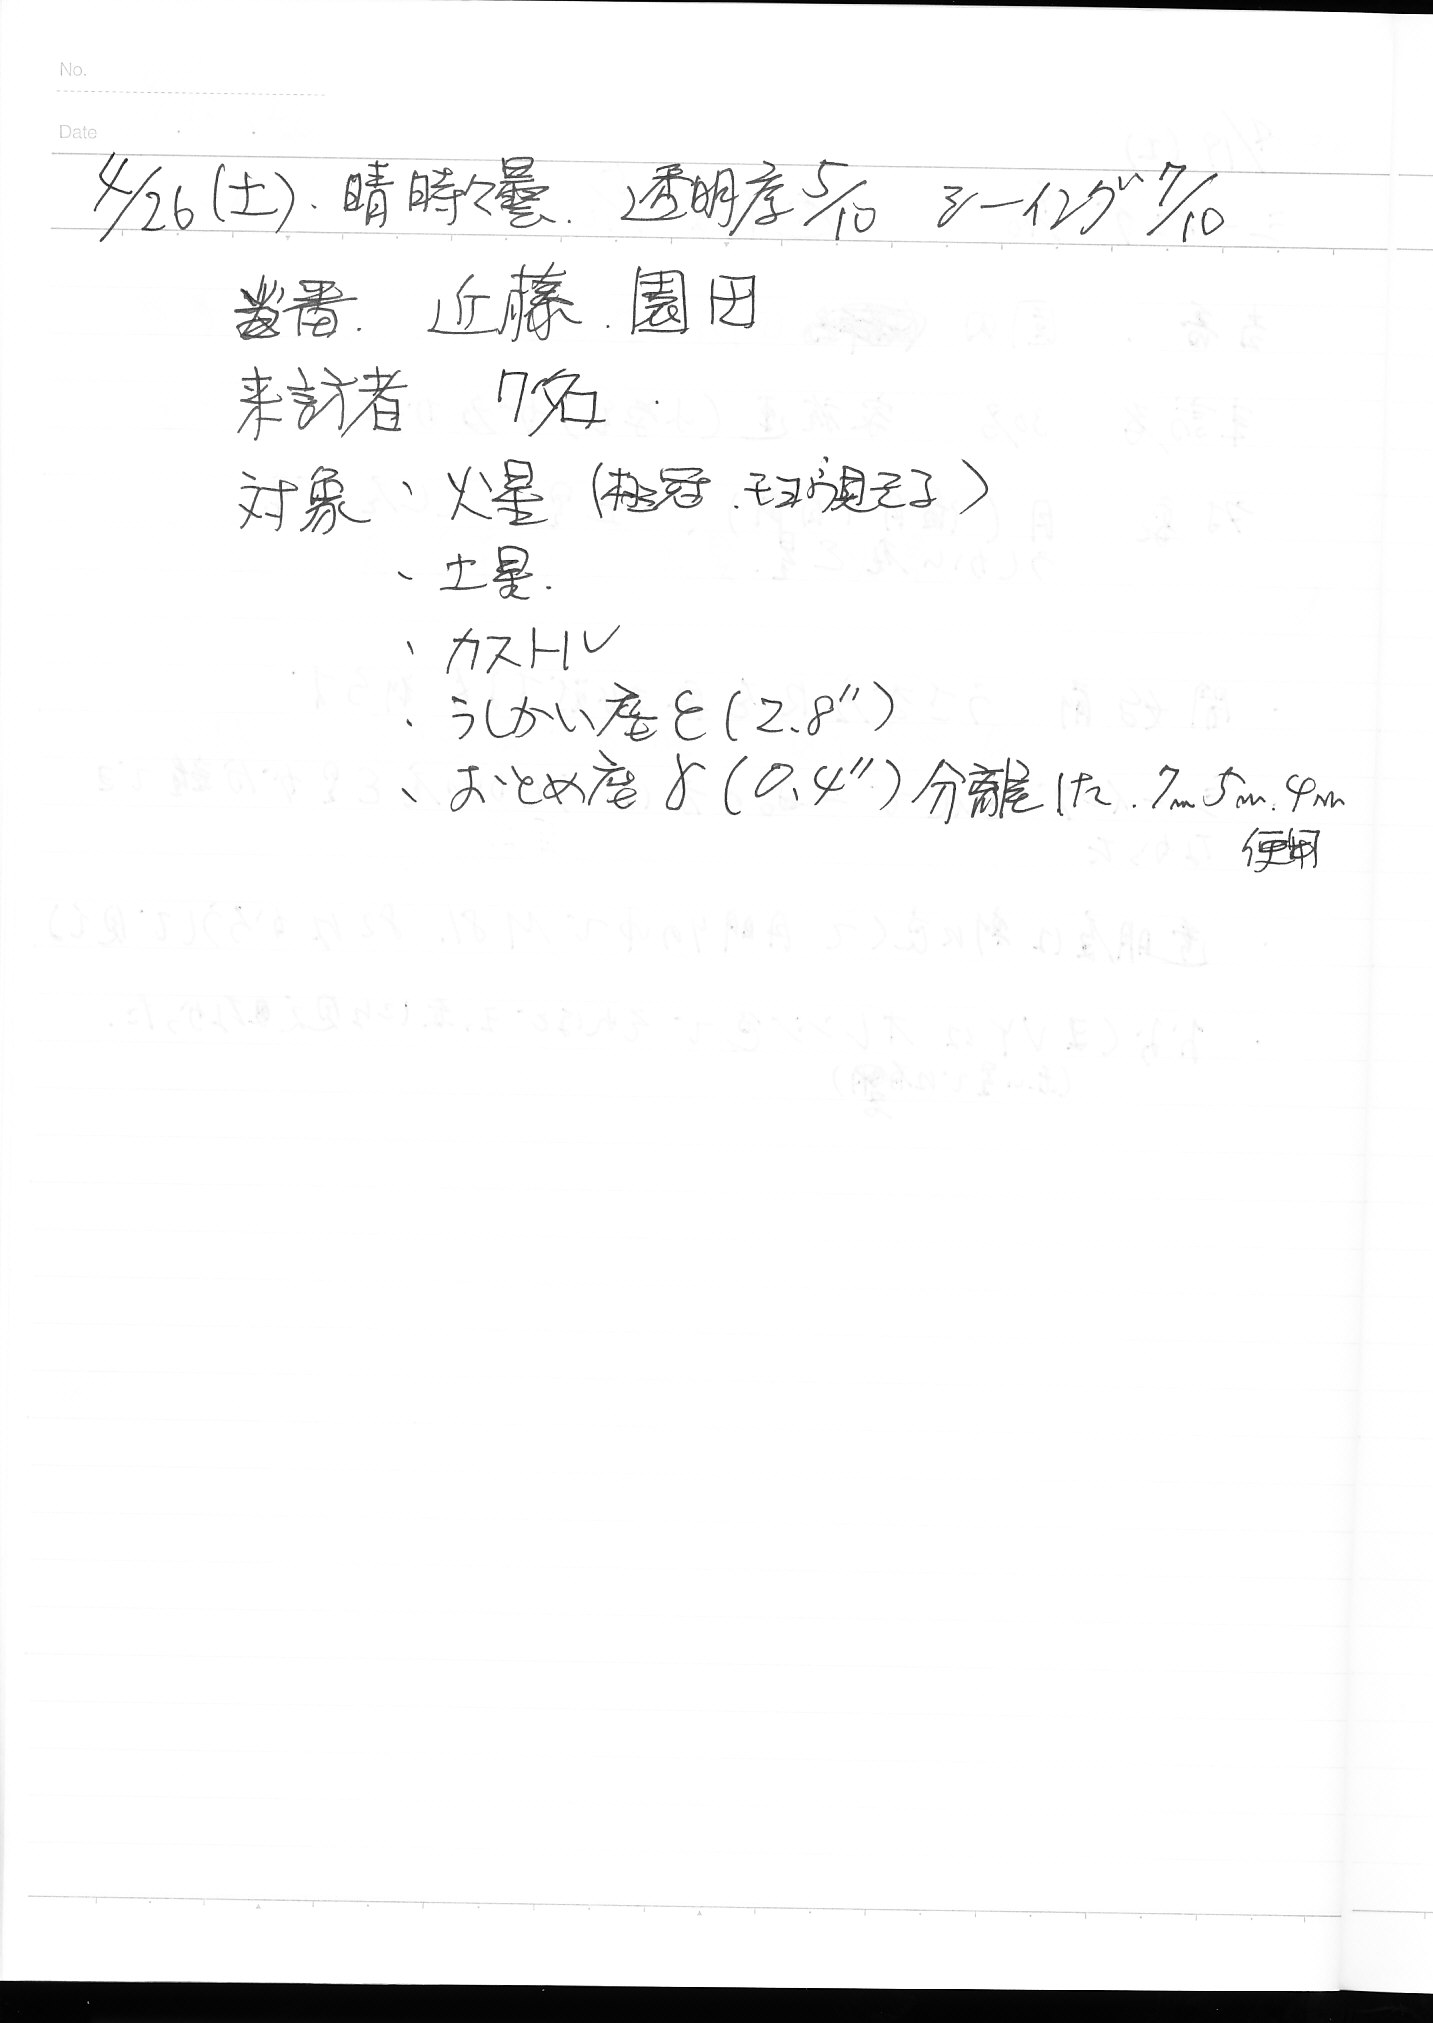 No.
Date
4/26(土). 晴時々曇. 透明度5/10 シーイング7/10
当番. 近藤. 園田
来訪者 7名.
対象、火星(極冠.モヨウ見える)
、土星.
、カストル
、うしかい座ε(2.8″)
、おとめ座γ(0.4″)分離した.7㎜5㎜.4㎜
使用